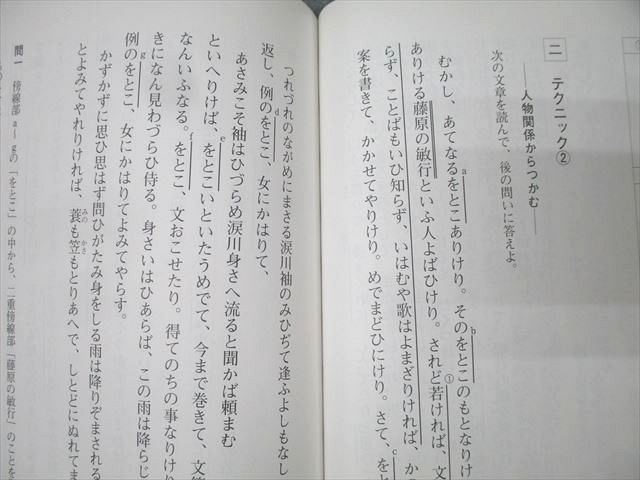 二　テクニック②
――人物関係からつかむ――
次の文章を読んで、後の問いに答えよ。
むかし、あてなるをとこありけり。そのをとこのもとなりけ
ありける藤原の敏行といふ人よばひけり。されど若ければ、文
らず、ことばもいひ知らず、いはむや歌はよまざりければ、か
案を書きて、かかせてやりけり。めでまどひにけり。さて、をと
a
b
①
c
つれづれのながめにまさる涙川袖のみひぢて逢ふよしもなし
返し、例のをとこ、女にかはりて、
あさみこそ袖はひづらめ涙川身さへ流ると聞かば頼まむ
といへりければ、をとこいといたうめでて、今まで巻きて、文
なんいふなる。をとこ、文おこせたり。得てのちの事なりけり
きになん見わづらひ侍る。身さいはひあらば、この雨は降らじ
例のをとこ、女にかはりてよみてやらす。
かずかずに思ひ思はず問ひがたみ身をしる雨は降りぞまされる
とよみてやれりければ、蓑も笠もとりあへで、しとどにぬれてま
d
e
f
g
みの
かさ
問一　傍線部a～gの「をとこ」の中から、二重傍線部「藤原の敏行」のことを